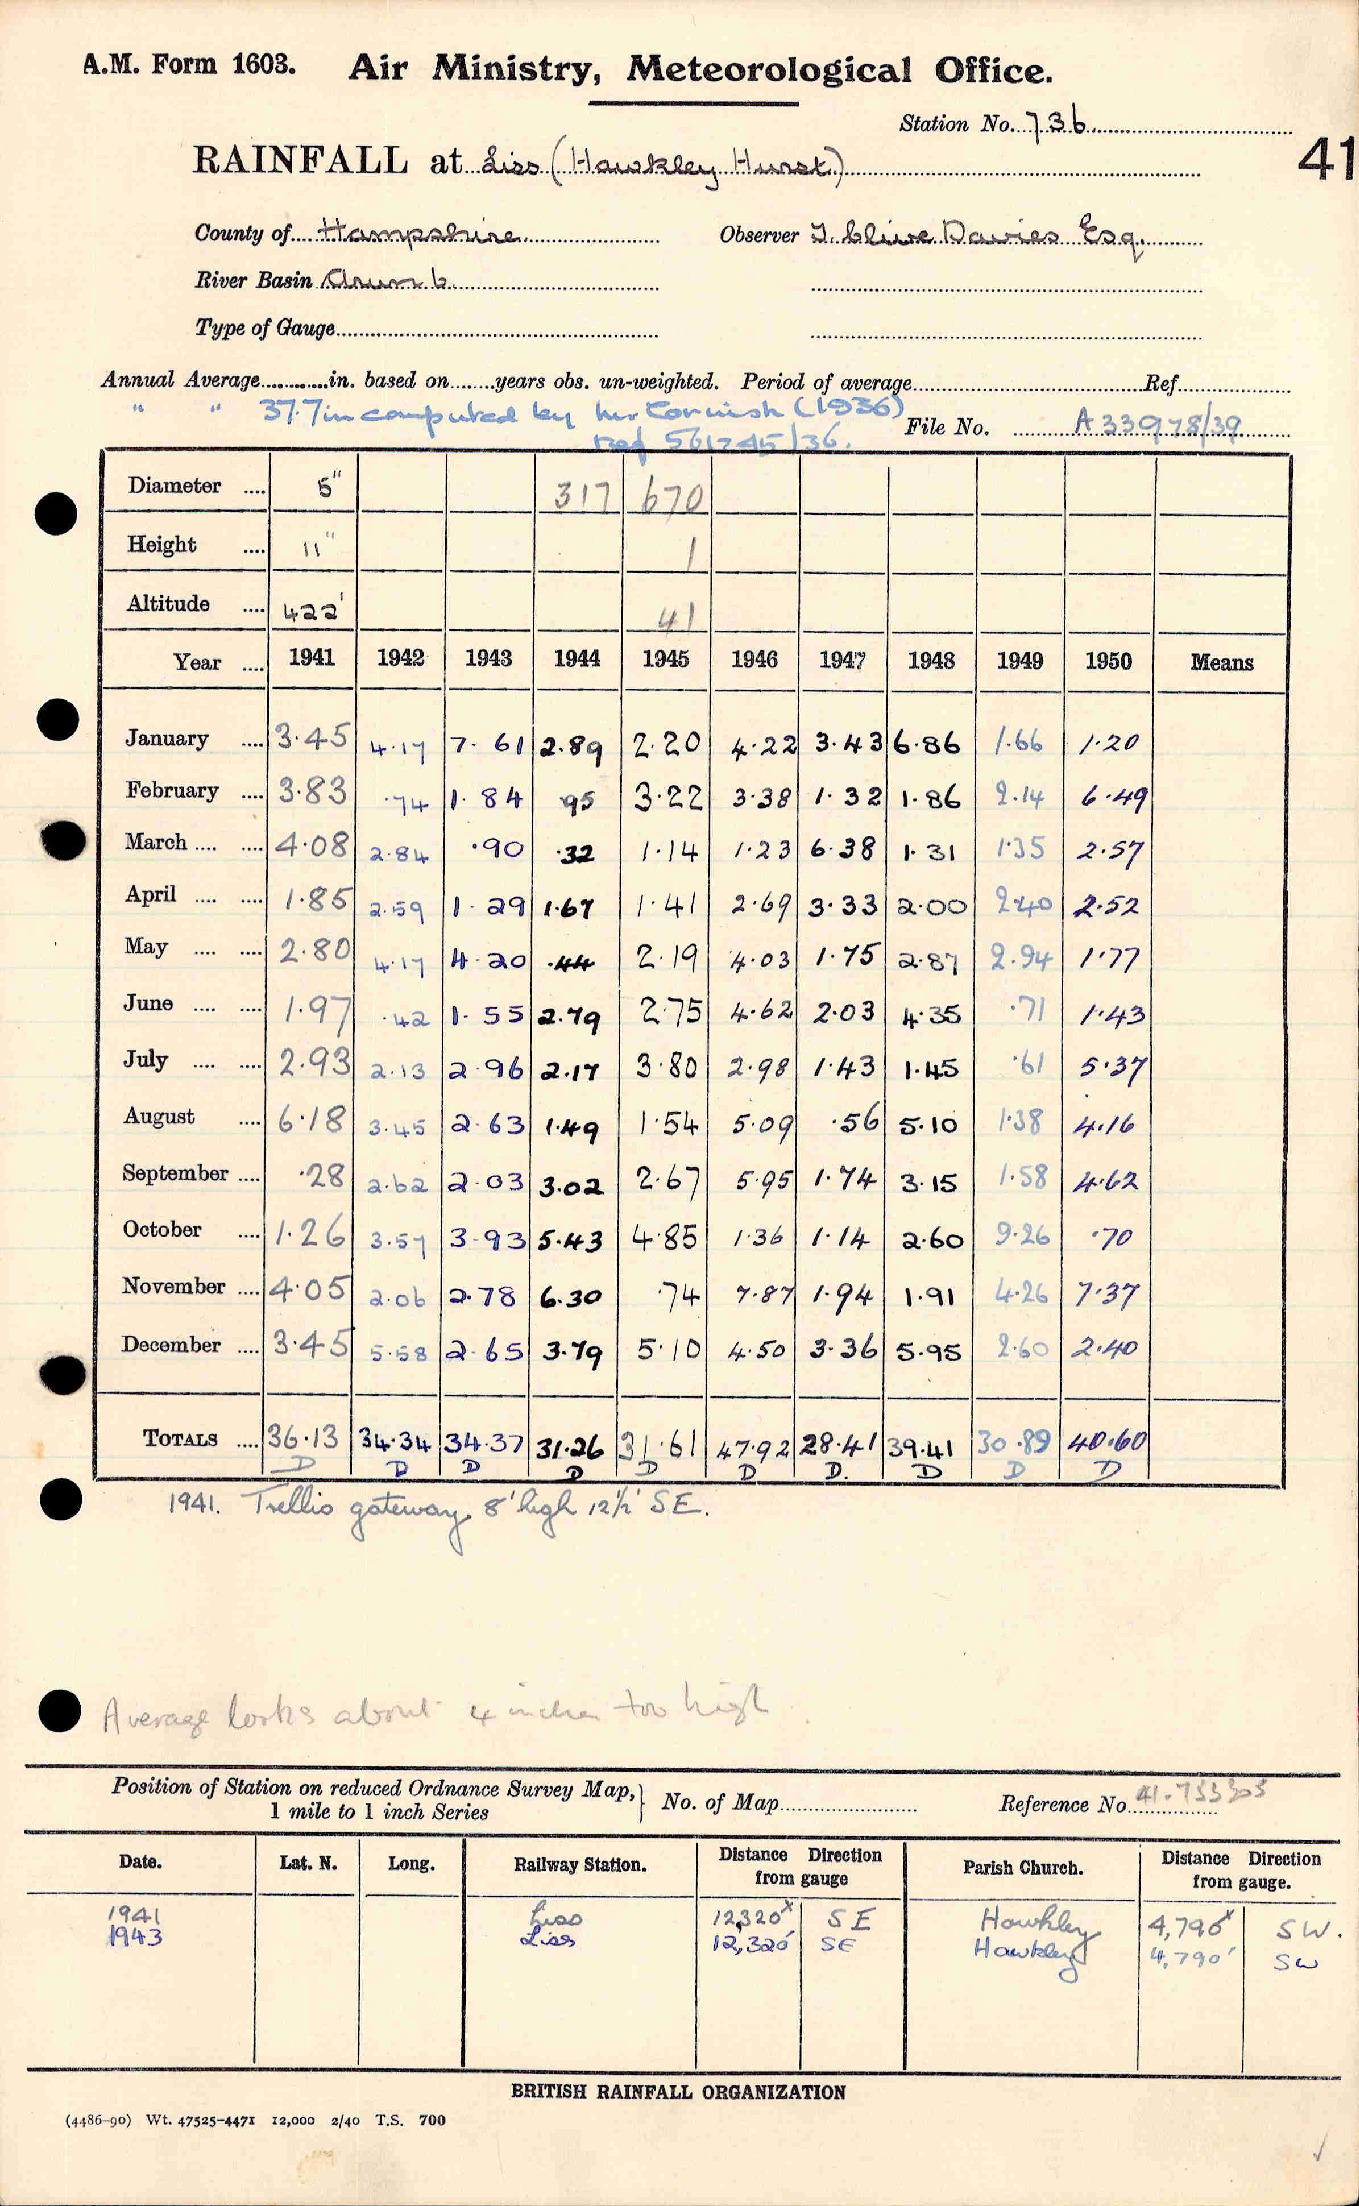 A.M. Form 1603. Air Ministry, Meteorological Office.
Station No. 736
41
RAINFALL at Liss (Hawkley Hurst)
County of Hampshire Observer J. Clive Davies Esq.
River Basin Arun b
Type of Gauge
Annual Average in. based on years obs. un-weighted. Period of average Ref.
" " 37.7in computed by Mr Cornish (1936)
File No. A33978/39
Ref 561745/36.
Diameter .... 5" 317 670
Height .... 11" 1
Altitude .... 422' 41
Year .... 1941 1942 1943 1944 1945 1946 1947 1948 1949 1950 Means
January .... 3.45 4.17 7.61 2.89 2.20 4.22 3.43 6.86 1.66 1.20
February .... 3.83 .74 1.84 .95 3.22 3.38 1.32 1.86 2.14 6.49
March .... .... 4.08 2.84 .90 .32 1.14 1.23 6.38 1.31 1.35 2.57
April .... .... 1.85 2.59 1.29 1.67 1.41 2.69 3.33 2.00 2.40 2.52
May .... .... 2.80 4.17 4.20 .44 2.19 4.03 1.75 2.87 2.94 1.77
June .... .... 1.97 .42 1.55 2.79 2.75 4.62 2.03 4.35 .71 1.43
July .... .... 2.93 2.13 2.96 2.17 3.80 2.98 1.43 1.45 .61 5.37
August .... 6.18 3.45 2.63 1.49 1.54 5.09 .56 5.10 1.38 4.16
September .... .28 2.62 2.03 3.02 2.67 5.95 1.74 3.15 1.58 4.62
October .... 1.26 3.57 3.93 5.43 4.85 1.36 1.14 2.60 9.26 .70
November .... 4.05 2.06 2.78 6.30 .74 7.87 1.94 1.91 4.26 7.37
December .... 3.45 5.58 2.65 3.79 5.10 4.50 3.36 5.95 2.60 2.40
TOTALS .... 36.13 34.34 34.37 31.26 31.61 47.92 28.41 39.41 30.89 40.60
D D D D D D D. D D D
1941. Trellis gateway 8' high 12½' SE.
Average looks about 4 inches too high.
Position of Station on reduced Ordnance Survey Map, 1 mile to 1 inch Series } No. of Map Reference No. 41.733303
Date. Lat. N. Long. Railway Station. Distance Direction from gauge Parish Church. Distance Direction from gauge.
1941 Liss 12,320ˣ SE Hawkley 4,790ˣ SW.
1943 Liss 12,320' SE Hawkley 4,790' SW
BRITISH RAINFALL ORGANIZATION
(4486-90) Wt. 47525-4471 12,000 2/40 T.S. 700